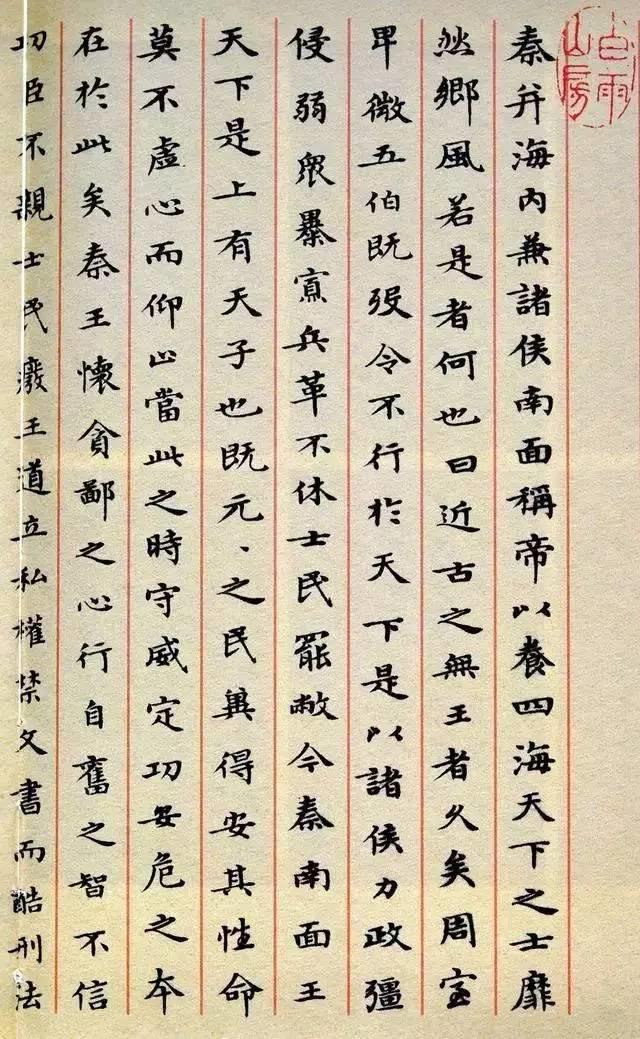 白雨
山房
秦并海内兼諸侯南面稱帝以養四海天下之士靡
然鄉風若是者何也曰近古之無王者久矣周室
卑微五伯既殁令不行於天下是以諸侯力政彊
侵弱衆暴寡兵革不休士民罷敝今秦南面王
天下是上有天子也既元、之民兾得安其性命
莫不虛心而仰上當此之時守威定功安危之本
在於此矣秦王懷貪鄙之心行自奮之智不信
功臣不親士民廢王道立私權禁文書而酷刑法